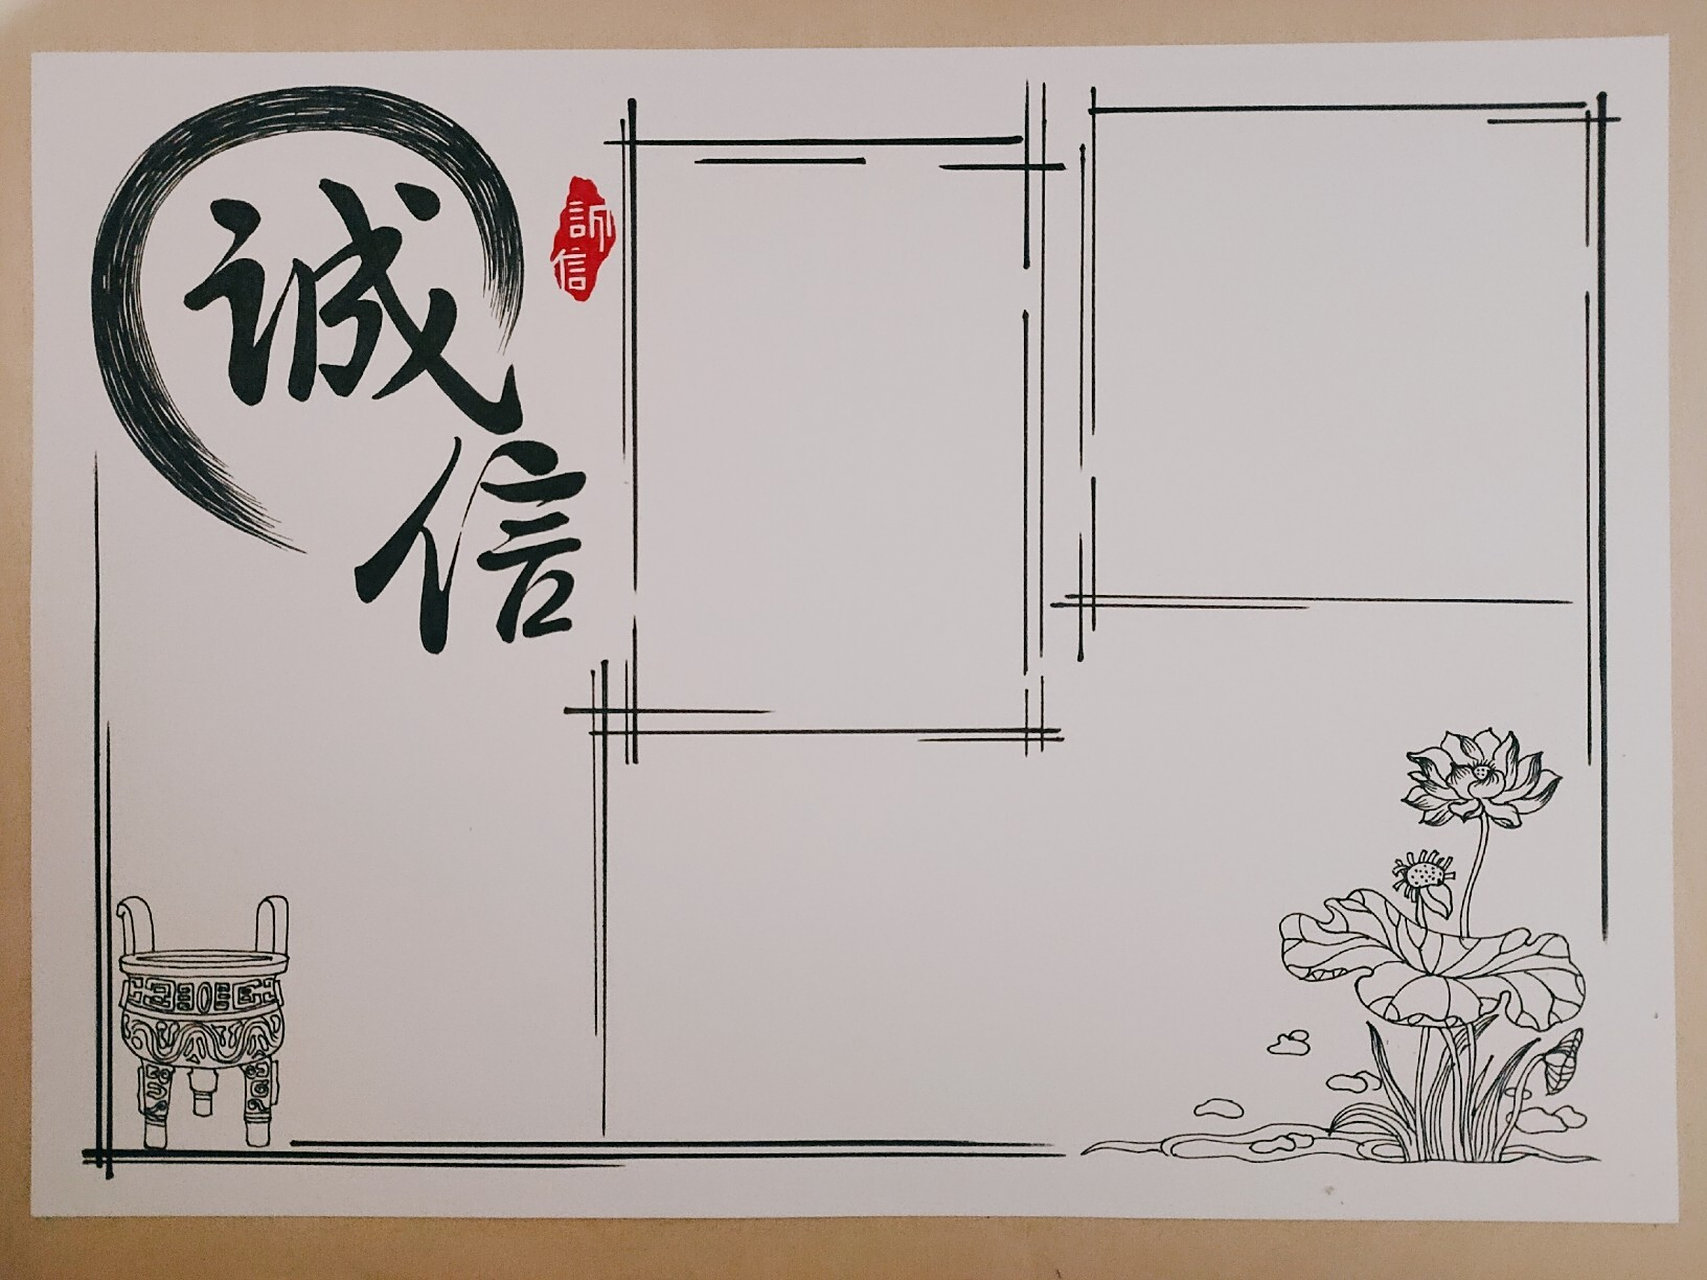 诚
信
誠
信